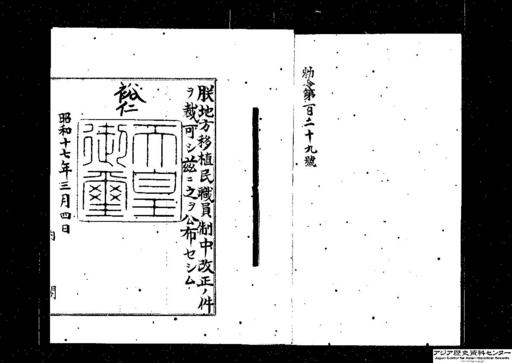 勅令第百二十九號
朕地方移植民職員制中改正ノ件
ヲ裁可シ茲ニ之ヲ公布セシム
裕仁
天皇
御璽
昭和十七年三月四日
内閣
アジア歴史資料センター
Japan Center for Asian Historical Records